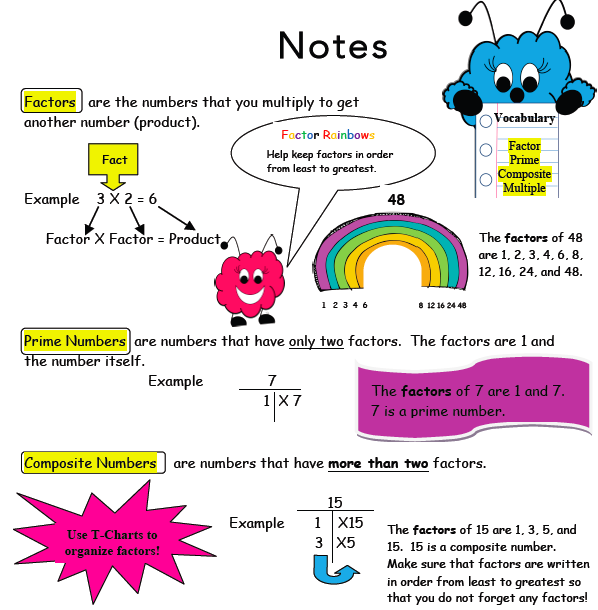 Notes
Factors are the numbers that you multiply to get
another number (product).
Vocabulary
Factor
Prime
Composite
Multiple
Factor Rainbows
Help keep factors in order
from least to greatest.
Fact
Example 3 X 2 = 6
Factor X Factor = Product
48
1 2 3 4 6 8 12 16 24 48
The factors of 48
are 1, 2, 3, 4, 6, 8,
12, 16, 24, and 48.
Prime Numbers are numbers that have only two factors. The factors are 1 and
the number itself.
Example
7
1 X 7
The factors of 7 are 1 and 7.
7 is a prime number.
Composite Numbers are numbers that have more than two factors.
Use T-Charts to
organize factors!
Example
15
1 X15
3 X5
The factors of 15 are 1, 3, 5, and
15. 15 is a composite number.
Make sure that factors are written
in order from least to greatest so
that you do not forget any factors!